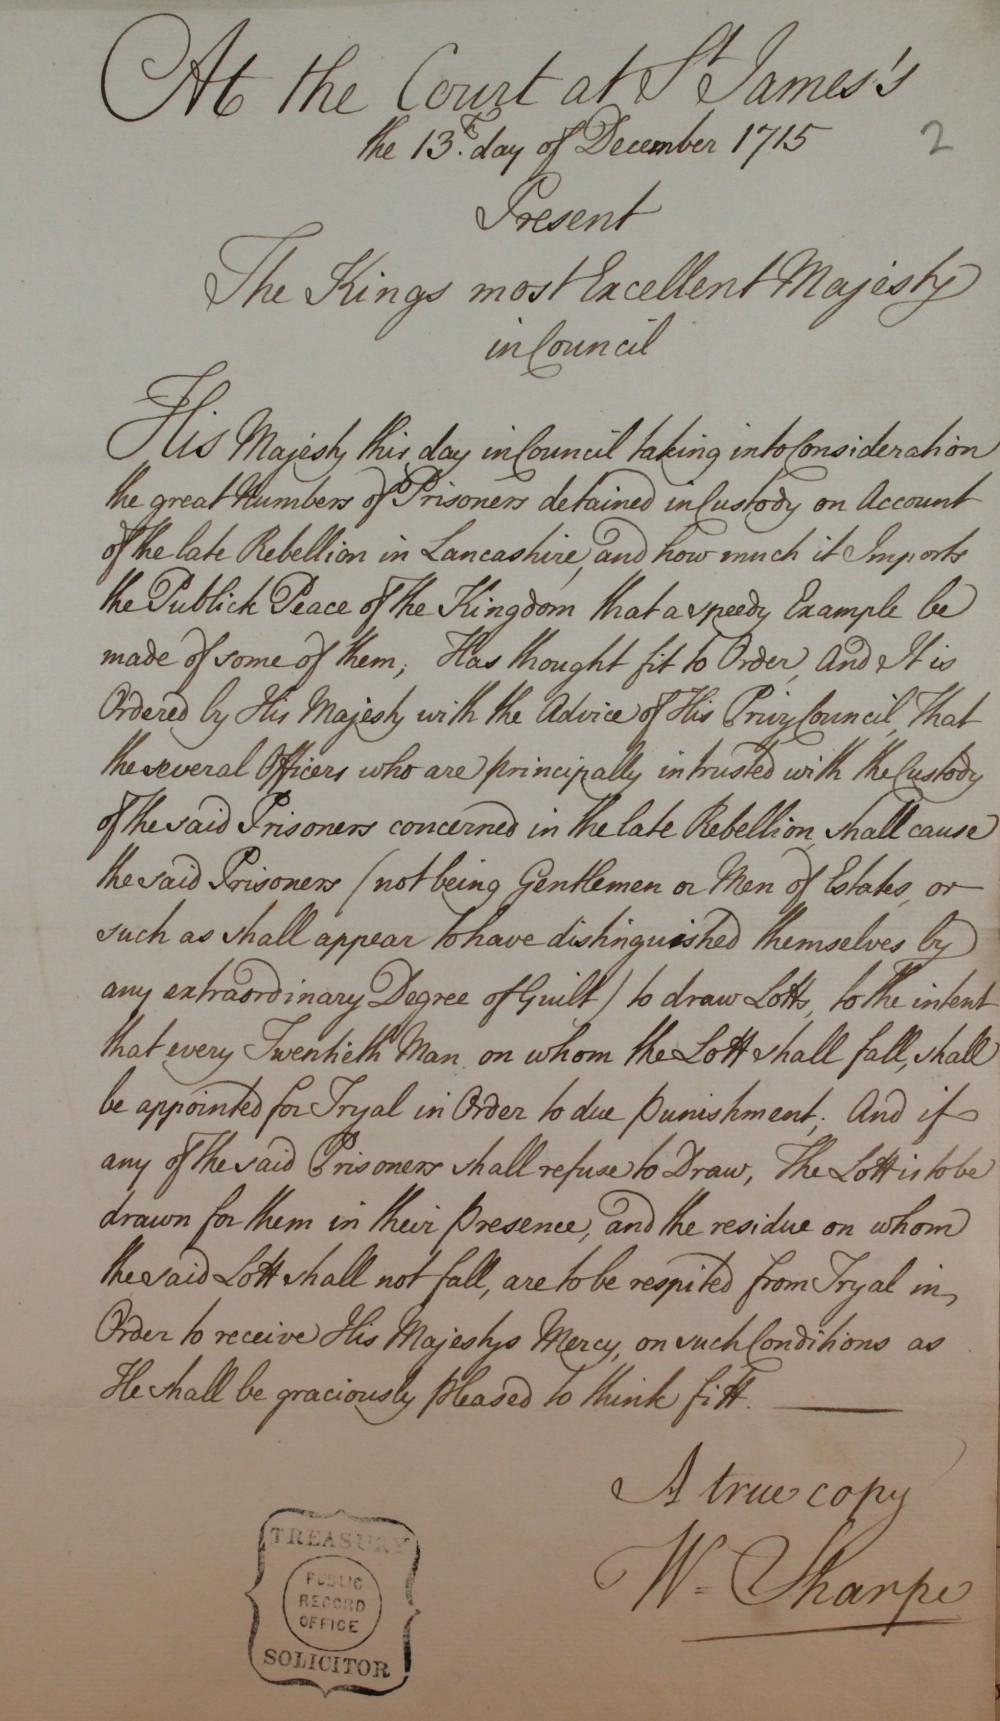 At the Court at St James's
the 13th. day of December 1715
2
Present
The Kings most Excellent Majesty
in Council
His Majesty this day in Council taking into Consideration
the great Numbers of Prisoners detained in Custody on Account
of the late Rebellion in Lancashire, and how much it Imports
the Publick Peace of the Kingdom that a speedy Example be
made of some of them; Has thought fit to Order, And It is
Ordered by His Majesty with the Advice of His Privy Council, That
the several Officers who are principally intrusted with the Custody
of the said Prisoners concerned in the late Rebellion, shall cause
the said Prisoners (not being Gentlemen or Men of Estates, or
such as shall appear to have distinguished themselves by
any extraordinary Degree of Guilt) to draw Lotts, to the intent
that every Twentieth Man, on whom the Lott shall fall, shall
be appointed for Tryal in Order to due punishment; And if
any of the said Prisoners shall refuse to Draw, The Lott is to be
drawn for them in their presence, and the residue on whom
the said Lott shall not fall, are to be respited from Tryal in
Order to receive His Majestys Mercy, on such Conditions as
He shall be graciously pleased to think fitt.
A true copy
W= Sharpe
TREASURY
PUBLIC
RECORD
OFFICE
SOLICITOR